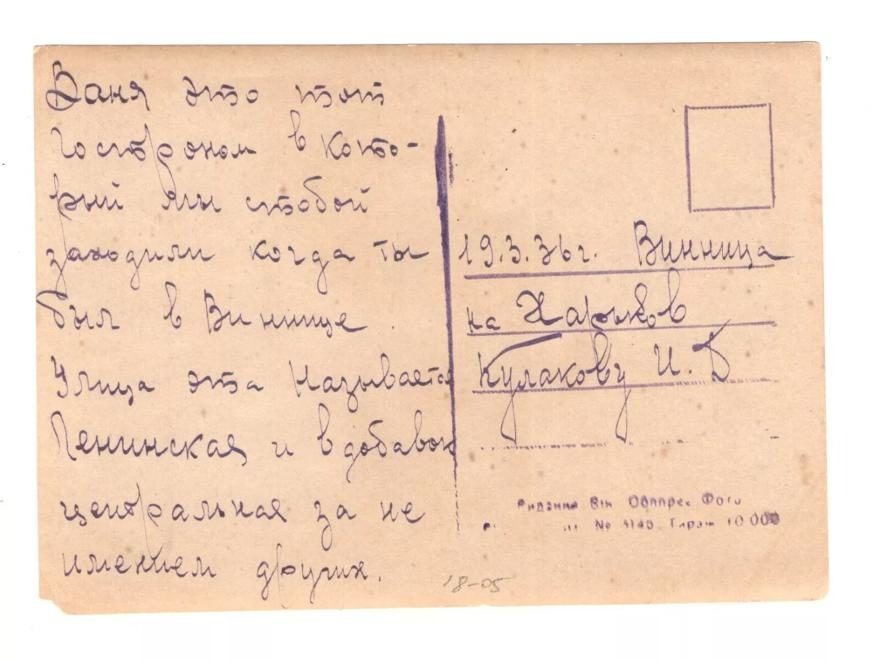 Ваня это тот
гостроном в кото-
рый мы стобой
заходили когда ты
был в Виннице.
Улица эта называется
Ленинская и вдобавок
центральная за не
имением других.
19.3.36г. Винница
на Харьков
Кулакову И.Д
Видання Він Облпрес Фото
№ Тираж 10 000
18-05